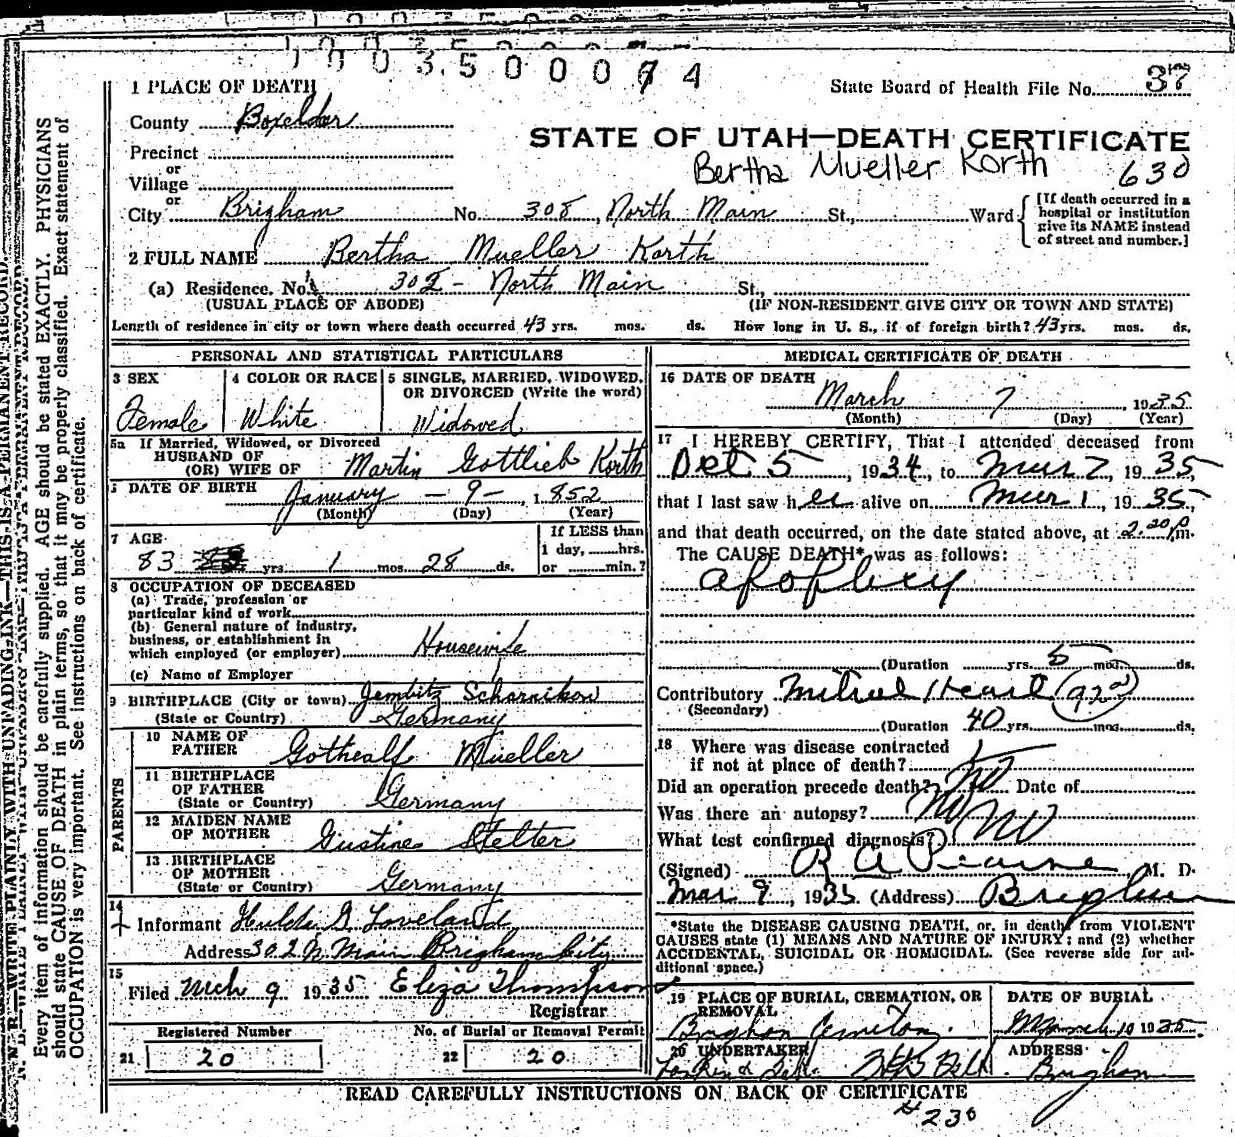 1003500074
1 PLACE OF DEATH
State Board of Health File No. 37
County Boxelder
STATE OF UTAH—DEATH CERTIFICATE
Precinct
Bertha Mueller Korth 630
or
Village
or
City Brigham No. 308, North Main St., Ward
[If death occurred in a
hospital or institution
give its NAME instead
of street and number.]
2 FULL NAME Bertha Mueller Korth
(a) Residence. No. 302 - North Main St.,
(USUAL PLACE OF ABODE) (IF NON-RESIDENT GIVE CITY OR TOWN AND STATE)
Length of residence in city or town where death occurred 43 yrs. mos. ds. How long in U. S., if of foreign birth? 43 yrs. mos. ds.
PERSONAL AND STATISTICAL PARTICULARS
3 SEX
Female
4 COLOR OR RACE
White
5 SINGLE, MARRIED, WIDOWED,
OR DIVORCED (Write the word)
Widowed
5a If Married, Widowed, or Divorced
HUSBAND OF
(OR) WIFE OF Martin Gottlieb Korth
DATE OF BIRTH January - 9 - 1852
(Month) (Day) (Year)
7 AGE
83 yrs 1 mos. 28 ds.
If LESS than
1 day, hrs.
or min.?
8 OCCUPATION OF DECEASED
(a) Trade, profession or
particular kind of work
(b) General nature of industry,
business, or establishment in
which employed (or employer) Housewife
(c) Name of Employer
9 BIRTHPLACE (City or town) Jembitz Scharnikow
(State or Country) Germany
PARENTS
10 NAME OF
FATHER Gothealf Mueller
11 BIRTHPLACE
OF FATHER
(State or Country) Germany
12 MAIDEN NAME
OF MOTHER Gustine Stelter
13 BIRTHPLACE
OF MOTHER
(State or Country) Germany
14
Informant Hulda G Loveland
Address 302 N. Main Brigham City
15
Filed Mch 9 1935 Eliza Thompson
Registrar
Registered Number No. of Burial or Removal Permit
21 20 22 20
MEDICAL CERTIFICATE OF DEATH
16 DATE OF DEATH
March 7, 1935
(Month) (Day) (Year)
17 I HEREBY CERTIFY, That I attended deceased from
Oct 5, 1934, to Mar 7, 1935,
that I last saw her alive on Mar 1, 1935,
and that death occurred, on the date stated above, at 2.20 p m.
The CAUSE DEATH* was as follows:
apoplexy
(Duration yrs. 5 mos. ds.
Contributory Mitral Heart
(Secondary)
(Duration 40 yrs. mos. ds.
18 Where was disease contracted
if not at place of death?
Did an operation precede death? no Date of
Was there an autopsy? no
What test confirmed diagnosis? no
(Signed) R A Pearse M. D.
Mar 9, 1935. (Address) Brigham
*State the DISEASE CAUSING DEATH, or, in death from VIOLENT
CAUSES state (1) MEANS AND NATURE OF INJURY; and (2) whether
ACCIDENTAL, SUICIDAL OR HOMICIDAL. (See reverse side for ad-
ditional space.)
19 PLACE OF BURIAL, CREMATION, OR
REMOVAL
Brigham Cemetery.
DATE OF BURIAL
March 10 1935
20 UNDERTAKER
ADDRESS
Brigham
READ CAREFULLY INSTRUCTIONS ON BACK OF CERTIFICATE
#230
N. B.—WRITE PLAINLY, WITH UNFADING INK—THIS IS A PERMANENT RECORD.
Every item of information should be carefully supplied. AGE should be stated EXACTLY. PHYSICIANS
should state CAUSE OF DEATH in plain terms, so that it may be properly classified. Exact statement of
OCCUPATION is very important. See instructions on back of certificate.